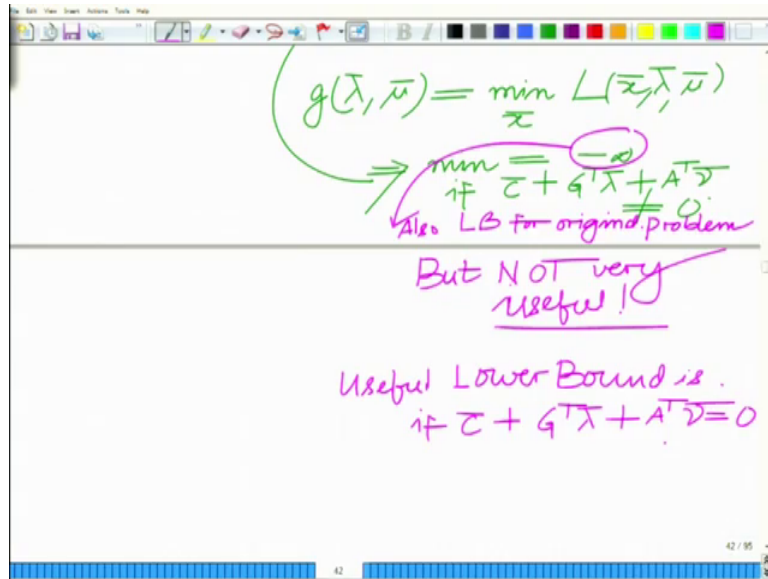 File Edit View Insert Actions Tools Help
g(λ̄, μ̄) = min L(x̄, λ̄, μ̄)
x̄
⇒ min = -∞
if c̄ + Gᵀλ̄ + Aᵀν̄ ≠ 0.
Also LB for original problem
But NOT very
useful!
Useful Lower Bound is.
if c̄ + Gᵀλ̄ + Aᵀν̄ = 0
42 / 95
42